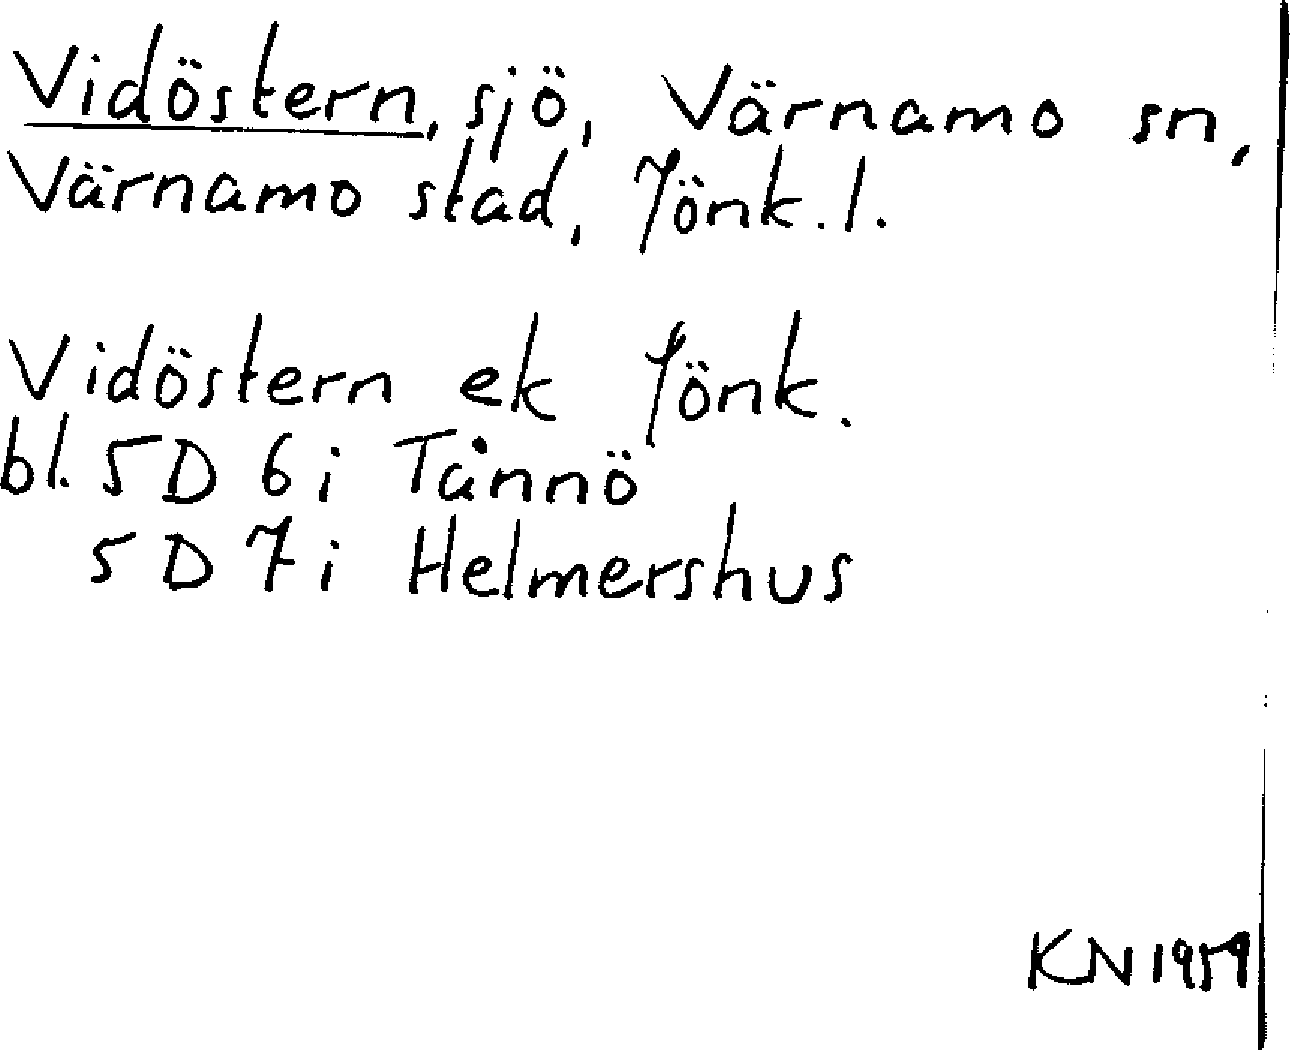 Vidöstern, sjö, Värnamo sn,
Värnamo stad, Jönk. l.
Vidöstern ek Jönk.
bl. 5D 6i Tånnö
5D 7i Helmershus
KN 1959